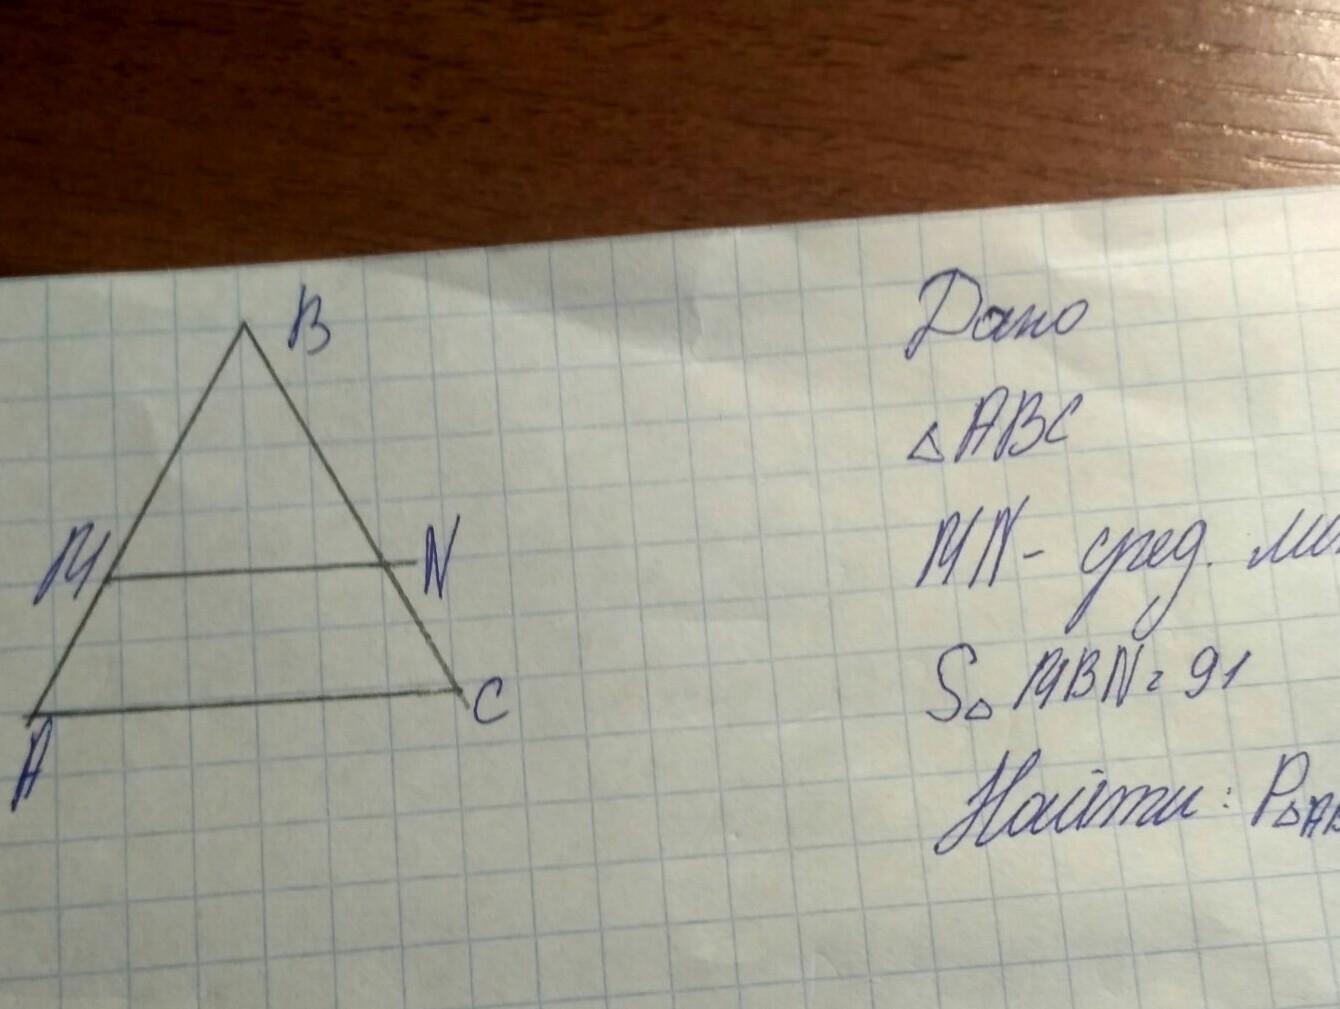 B
M
N
A
C
Дано
△ABC
MN - сред.
S△ MBN = 91
Найти: P△AB